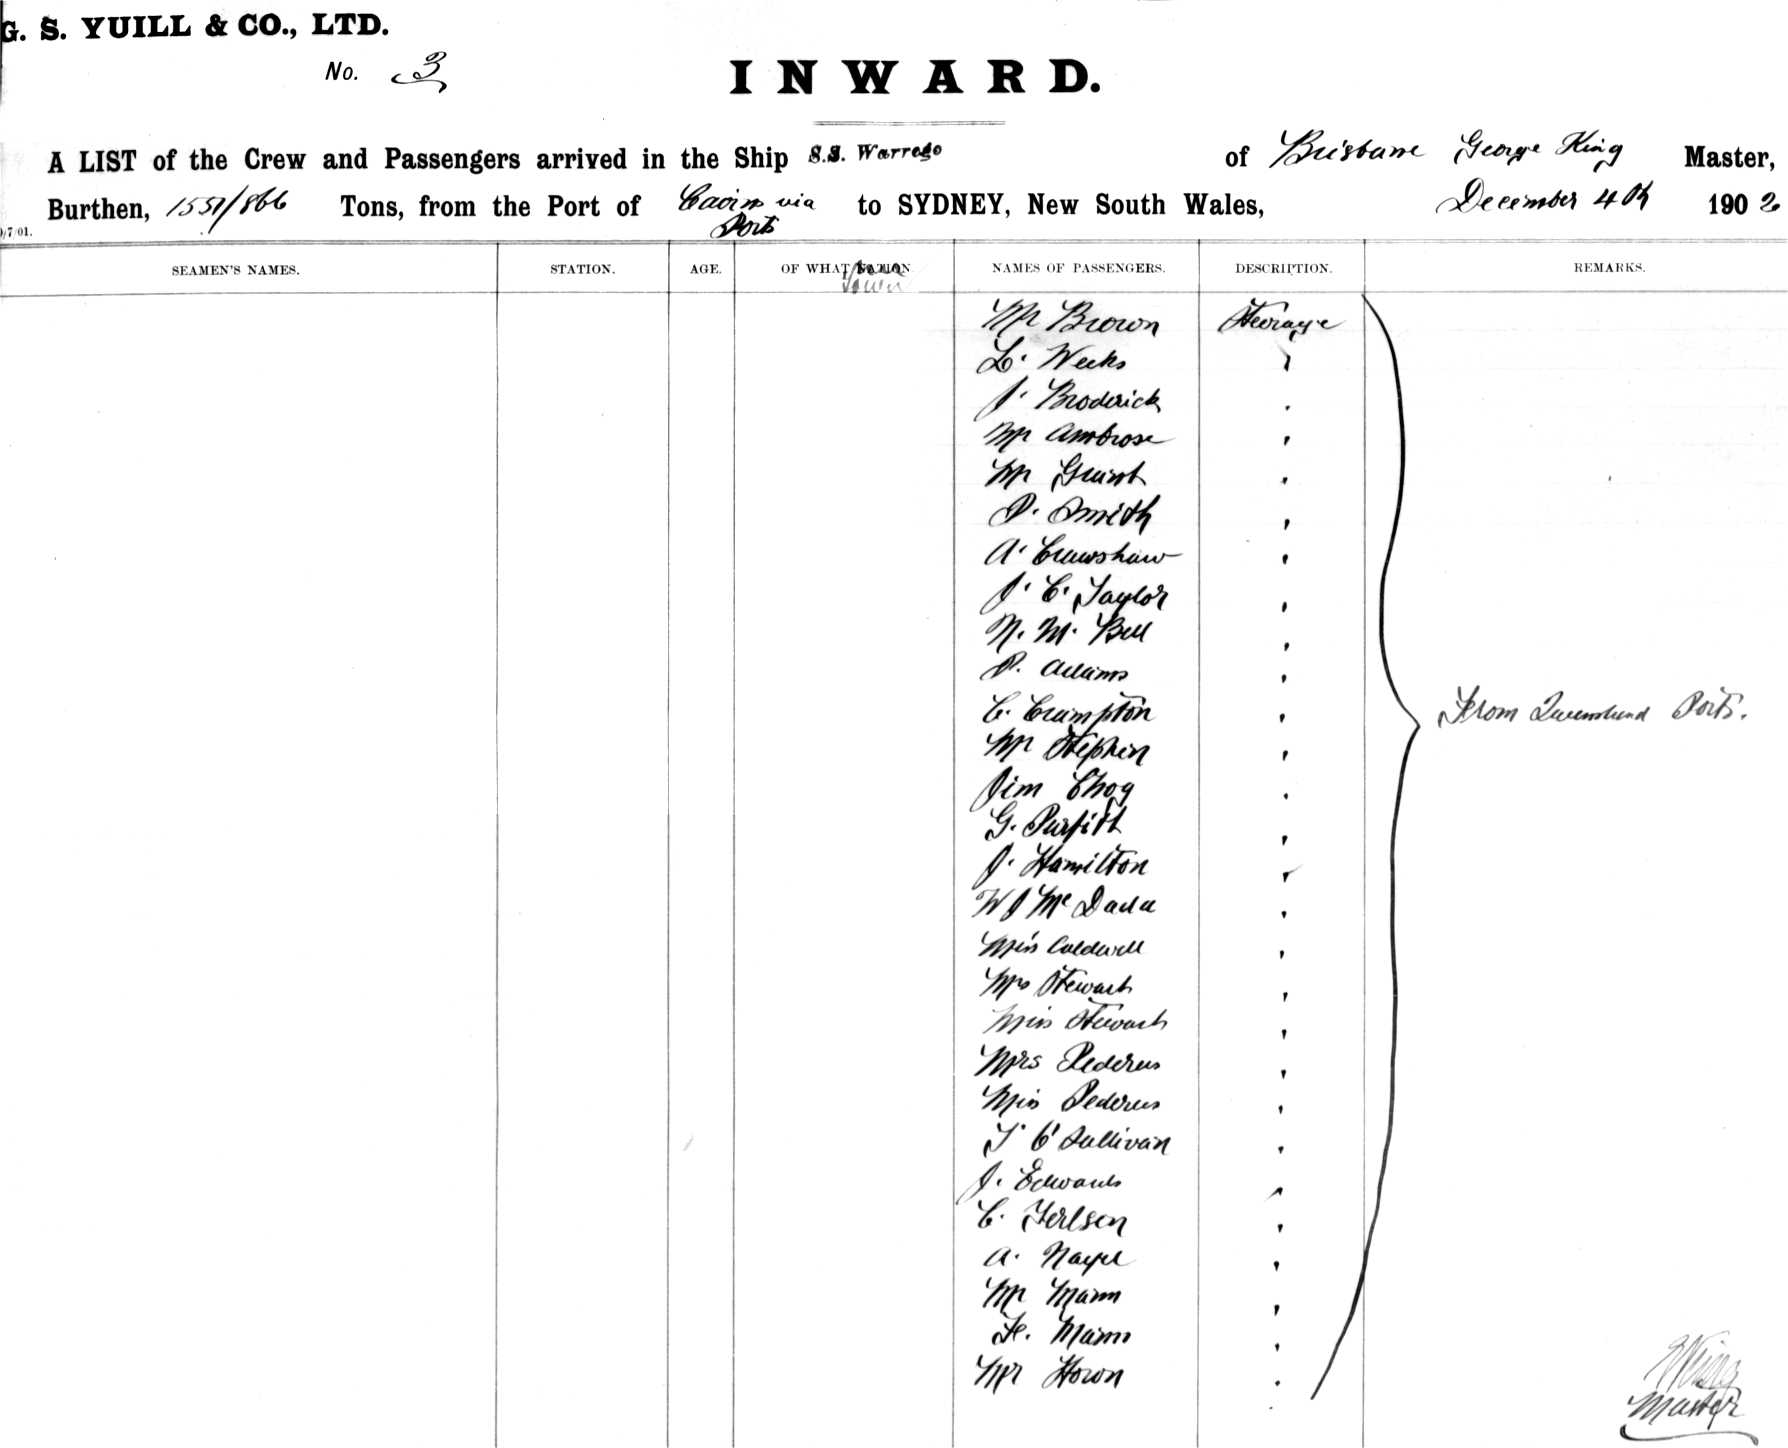 G. S. YUILL & CO., LTD.
No. 3
INWARD.
A LIST of the Crew and Passengers arrived in the Ship S.S. Warrego of Brisbane George King Master,
Burthen, 1551/866 Tons, from the Port of Cairns via Ports to SYDNEY, New South Wales, December 4th 1902
/7/01.
SEAMEN'S NAMES. STATION. AGE. OF WHAT NATION. NAMES OF PASSENGERS. DESCRIPTION. REMARKS.
Mr Brown Steerage
L. Weeks
J. Broderick
Mr Ambrose
Mr
P. Smith
A. Crawshaw
J. C. Taylor
N. M. Bell
P. Adams
C. Crampton
Mr Stephen
Jim Chog
From Queensland Ports.
G. Purfitt
J. Hamilton
W J Mc
Miss Caldwell
Mrs Stewart
Miss Stewart
Mrs Pederus
Miss Pederus
T O'Sullivan
J. Edwards
C.
A. Nagel
Mr Mann
F. Mann
Mr Horon
King
Master